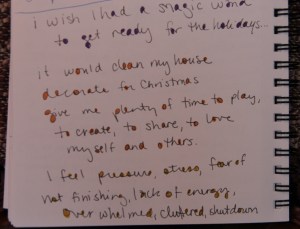 i wish i had a magic wand
to get ready for the holidays...
it would clean my house
decorate for Christmas
give me plenty of time to play,
to create, to share, to love
myself and others.
I feel pressure, stress, fear of
not finishing, lack of energy,
over whelmed, cluttered, shutdown